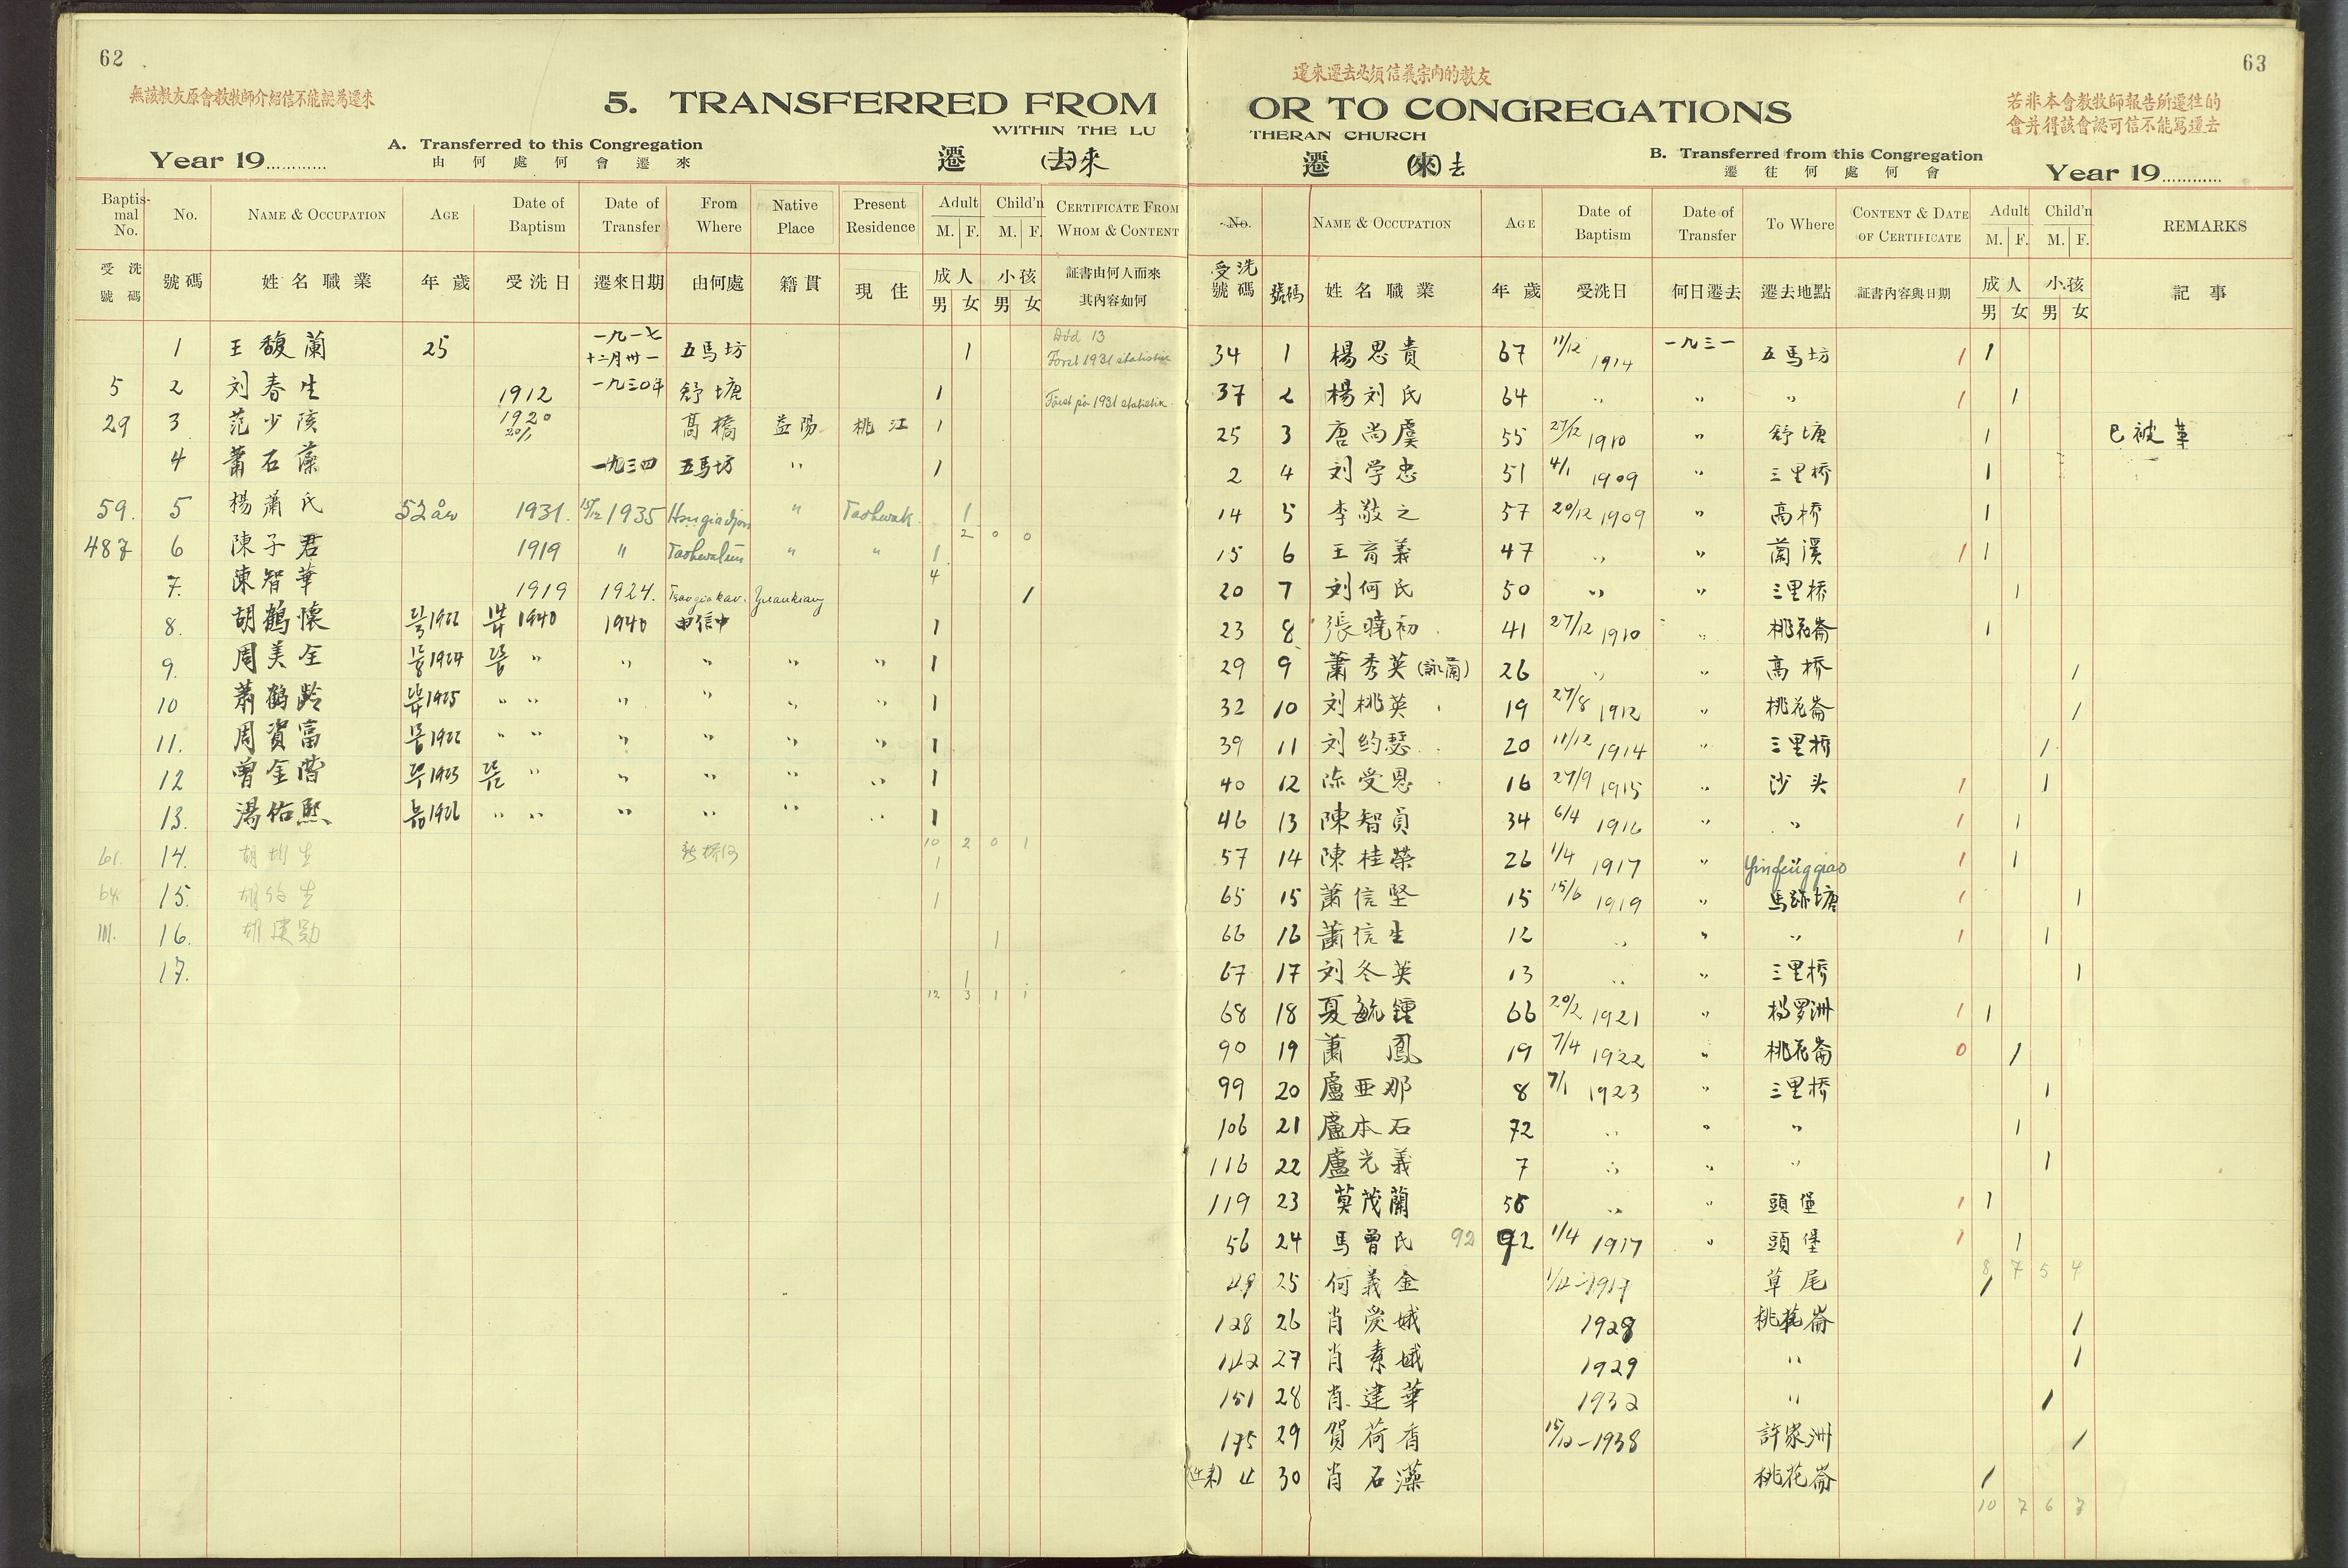 62
無該教友原會教牧師介紹信不能認為遷來
5. TRANSFERRED FROM
WITHIN THE LU
A. Transferred to this Congregation
由何處何會遷來
Year 19............
遷 (去)來
Baptismal No. No. NAME & OCCUPATION AGE Date of Baptism Date of Transfer From Where Native Place Present Residence Adult Child'n CERTIFICATE FROM WHOM & CONTENT
M. F. M. F.
受洗號碼 號碼 姓名職業 年歲 受洗日 遷來日期 由何處 籍貫 現住 成人 小孩 証書由何人而來其內容如何
男 女 男 女
1 王馥蘭 25 一九一七 十二月卅一 五馬坊 1 Död 13 Förel 1931 statistik
5 2 刘春生 1912 一九三〇年 舒塘 1 Förel på 1931 statistik
29 3 范少陔 1920 20/1 髙橋 益陽 桃江 1
4 蕭石藻 一九三四 五馬坊 " 1
59. 5 楊蕭氏 52 år 1931. 15/12 1935 " 1
2 0 0
487 6 陳子君 1919 " " " 1
4
7. 陳智華 1919 1924. Yuankiang 1
8. 胡鶴懷 1922 1940 1940 由信中 1
9. 周美全 1924 " " " " " 1
10 蕭鶴齡 1925 " " " " " " 1
11. 周資富 1922 " " " " " " 1
12 曾金階 1923 " " " " " 1
13. 湯佑熙 1926 " " " " " " 1
10 2 0 1
61. 14. 1
64. 15. 1
101. 16. 1
17. 1
12 3 1 1
63
遷來遷去必須信義宗內的教友
若非本會教牧師報告所遷往的
會并得該會認可信不能寫遷去
OR TO CONGREGATIONS
THERAN CHURCH
遷 (來)去
B. Transferred from this Congregation
遷往何處何會
Year 19............
No. NAME & OCCUPATION AGE Date of Baptism Date of Transfer To Where CONTENT & DATE OF CERTIFICATE Adult Child'n REMARKS
M. F. M. F.
受洗號碼 號碼 姓名職業 年歲 受洗日 何日遷去 遷去地點 証書內容與日期 成人 小孩 記事
男 女 男 女
34 1 楊思貴 67 11/12 1914 一九三一 五馬坊 1 1
37 2 楊刘氏 64 " " " 1 1
25 3 唐尚虞 55 27/12 1910 " 舒塘 1 已被革
2 4 刘学忠 51 4/1 1909 " 三里桥 1
14 5 李敬之 57 20/12 1909 " 高桥 1
15 6 王育義 47 " " 蘭溪 1 1
20 7 刘何氏 50 " " 三里桥 1
23 8 張曉初 41 27/12 1910 " 桃花崙 1
29 9 蕭秀英(詠蘭) 26 " " 高桥 1
32 10 刘桃英 19 27/8 1912 " 桃花崙 1
39 11 刘约瑟 20 11/12 1914 " 三里桥 1
40 12 陈受恩 16 27/9 1915 " 沙头 1 1
46 13 陳智員 34 6/4 1916 " " 1 1
57 14 陳桂榮 26 1/4 1917 " Yinfengqiao 1 1
65 15 蕭信堅 15 15/6 1919 " 馬跡塘 1 1
66 16 蕭信生 12 " " " 1 1
67 17 刘冬英 13 " " 三里桥 1
68 18 夏毓鍾 66 20/2 1921 " 楊罗洲 1 1
90 19 蕭鳳 19 7/4 1922 " 桃花崙 0 1
99 20 盧亜那 8 7/1 1923 " 三里桥 1
106 21 盧本石 72 " " " 1
116 22 盧光義 7 " " " 1
119 23 莫茂蘭 56 " " 頭堡 1 1
56 24 馬曾氏 92 92 1/4 1917 " 頭堡 1 1
8 7 5 4
49 25 何義金 1/4-1917 草尾 1
128 26 肖愛娥 1928 桃花崙 1
142 27 肖素娥 1929 " 1
151 28 肖建華 1932 " 1
175 29 賀荷香 15/12-1938 許家洲 1
(迁来) 4 30 肖石藻 桃花崙 1
10 7 6 7